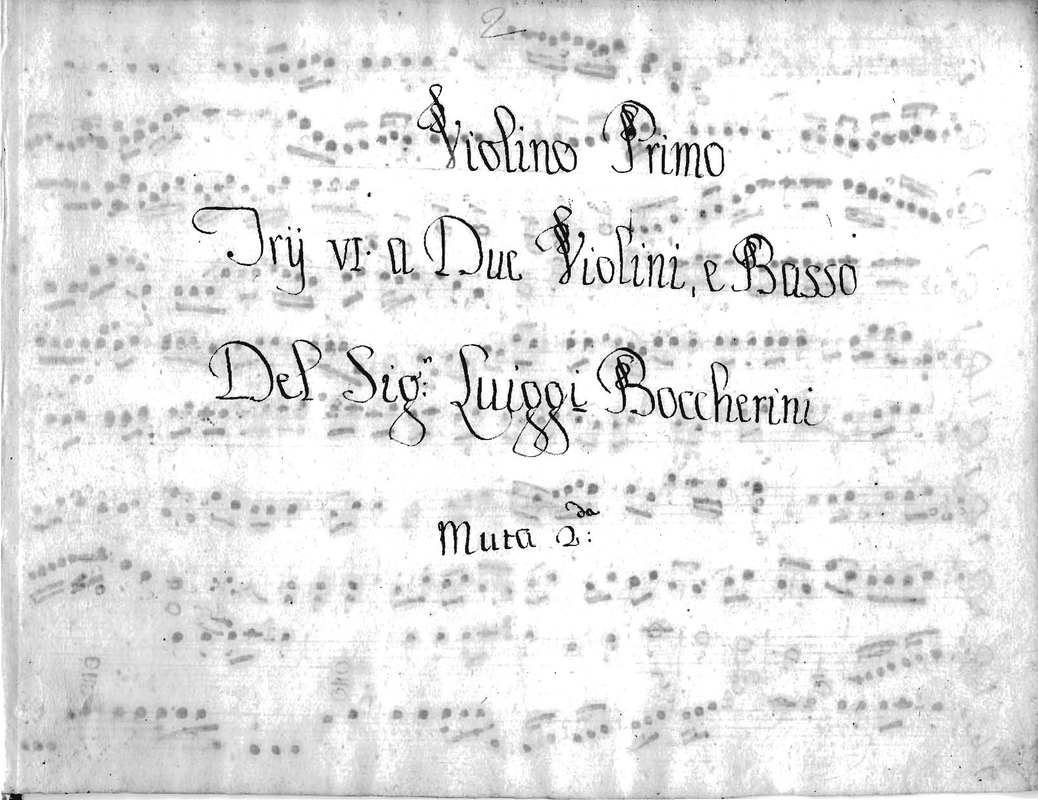 2
Violino Primo
Trij VI. a Due Violini, e Basso
Del Sig.r Luiggi Boccherini
Muta 2.da: